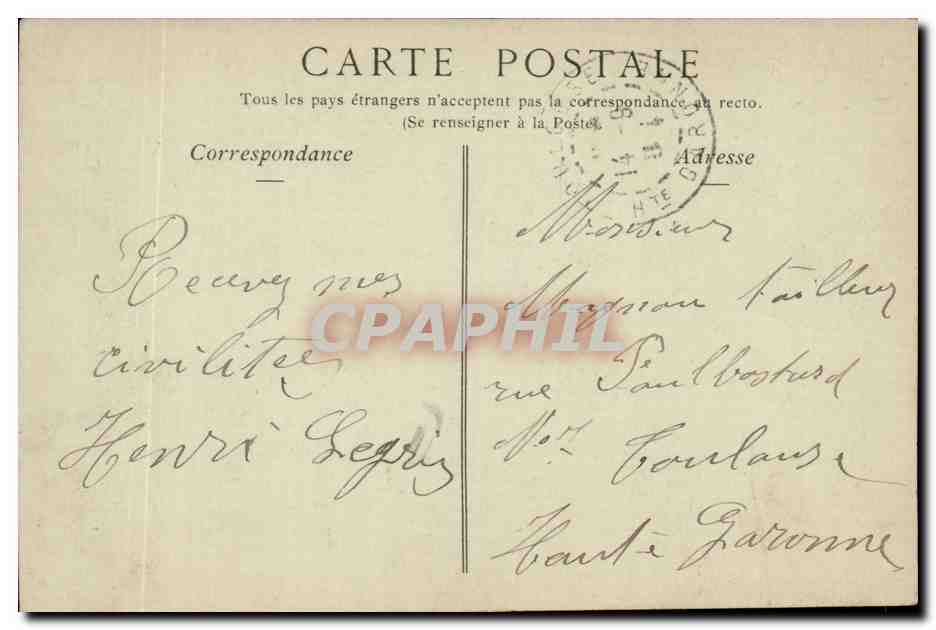 CARTE POSTALE
Tous les pays étrangers n'acceptent pas la correspondance au recto.
(Se renseigner à la Poste).
Correspondance
Recevez mes
civilitées
Henri
Adresse
Monsieur
tailleur
rue
No 7
Toulouse
Haute Garonne
HTE GARONNE
CPAPHIL